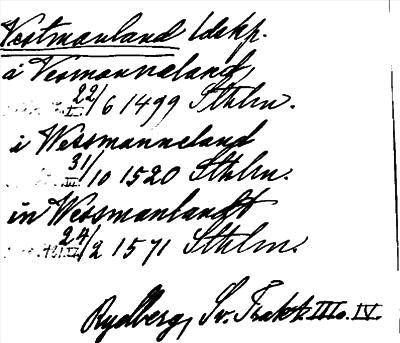 Vestmanland ldskp.
á Vesmanneland,
22/6 1499 Sthlm.
i Wessmanneland
31/10 1520 Sthlm.
in Wessmanlandt
24/2 1571 Sthlm.
Rydberg, Sv. Trakt. III o. IV.